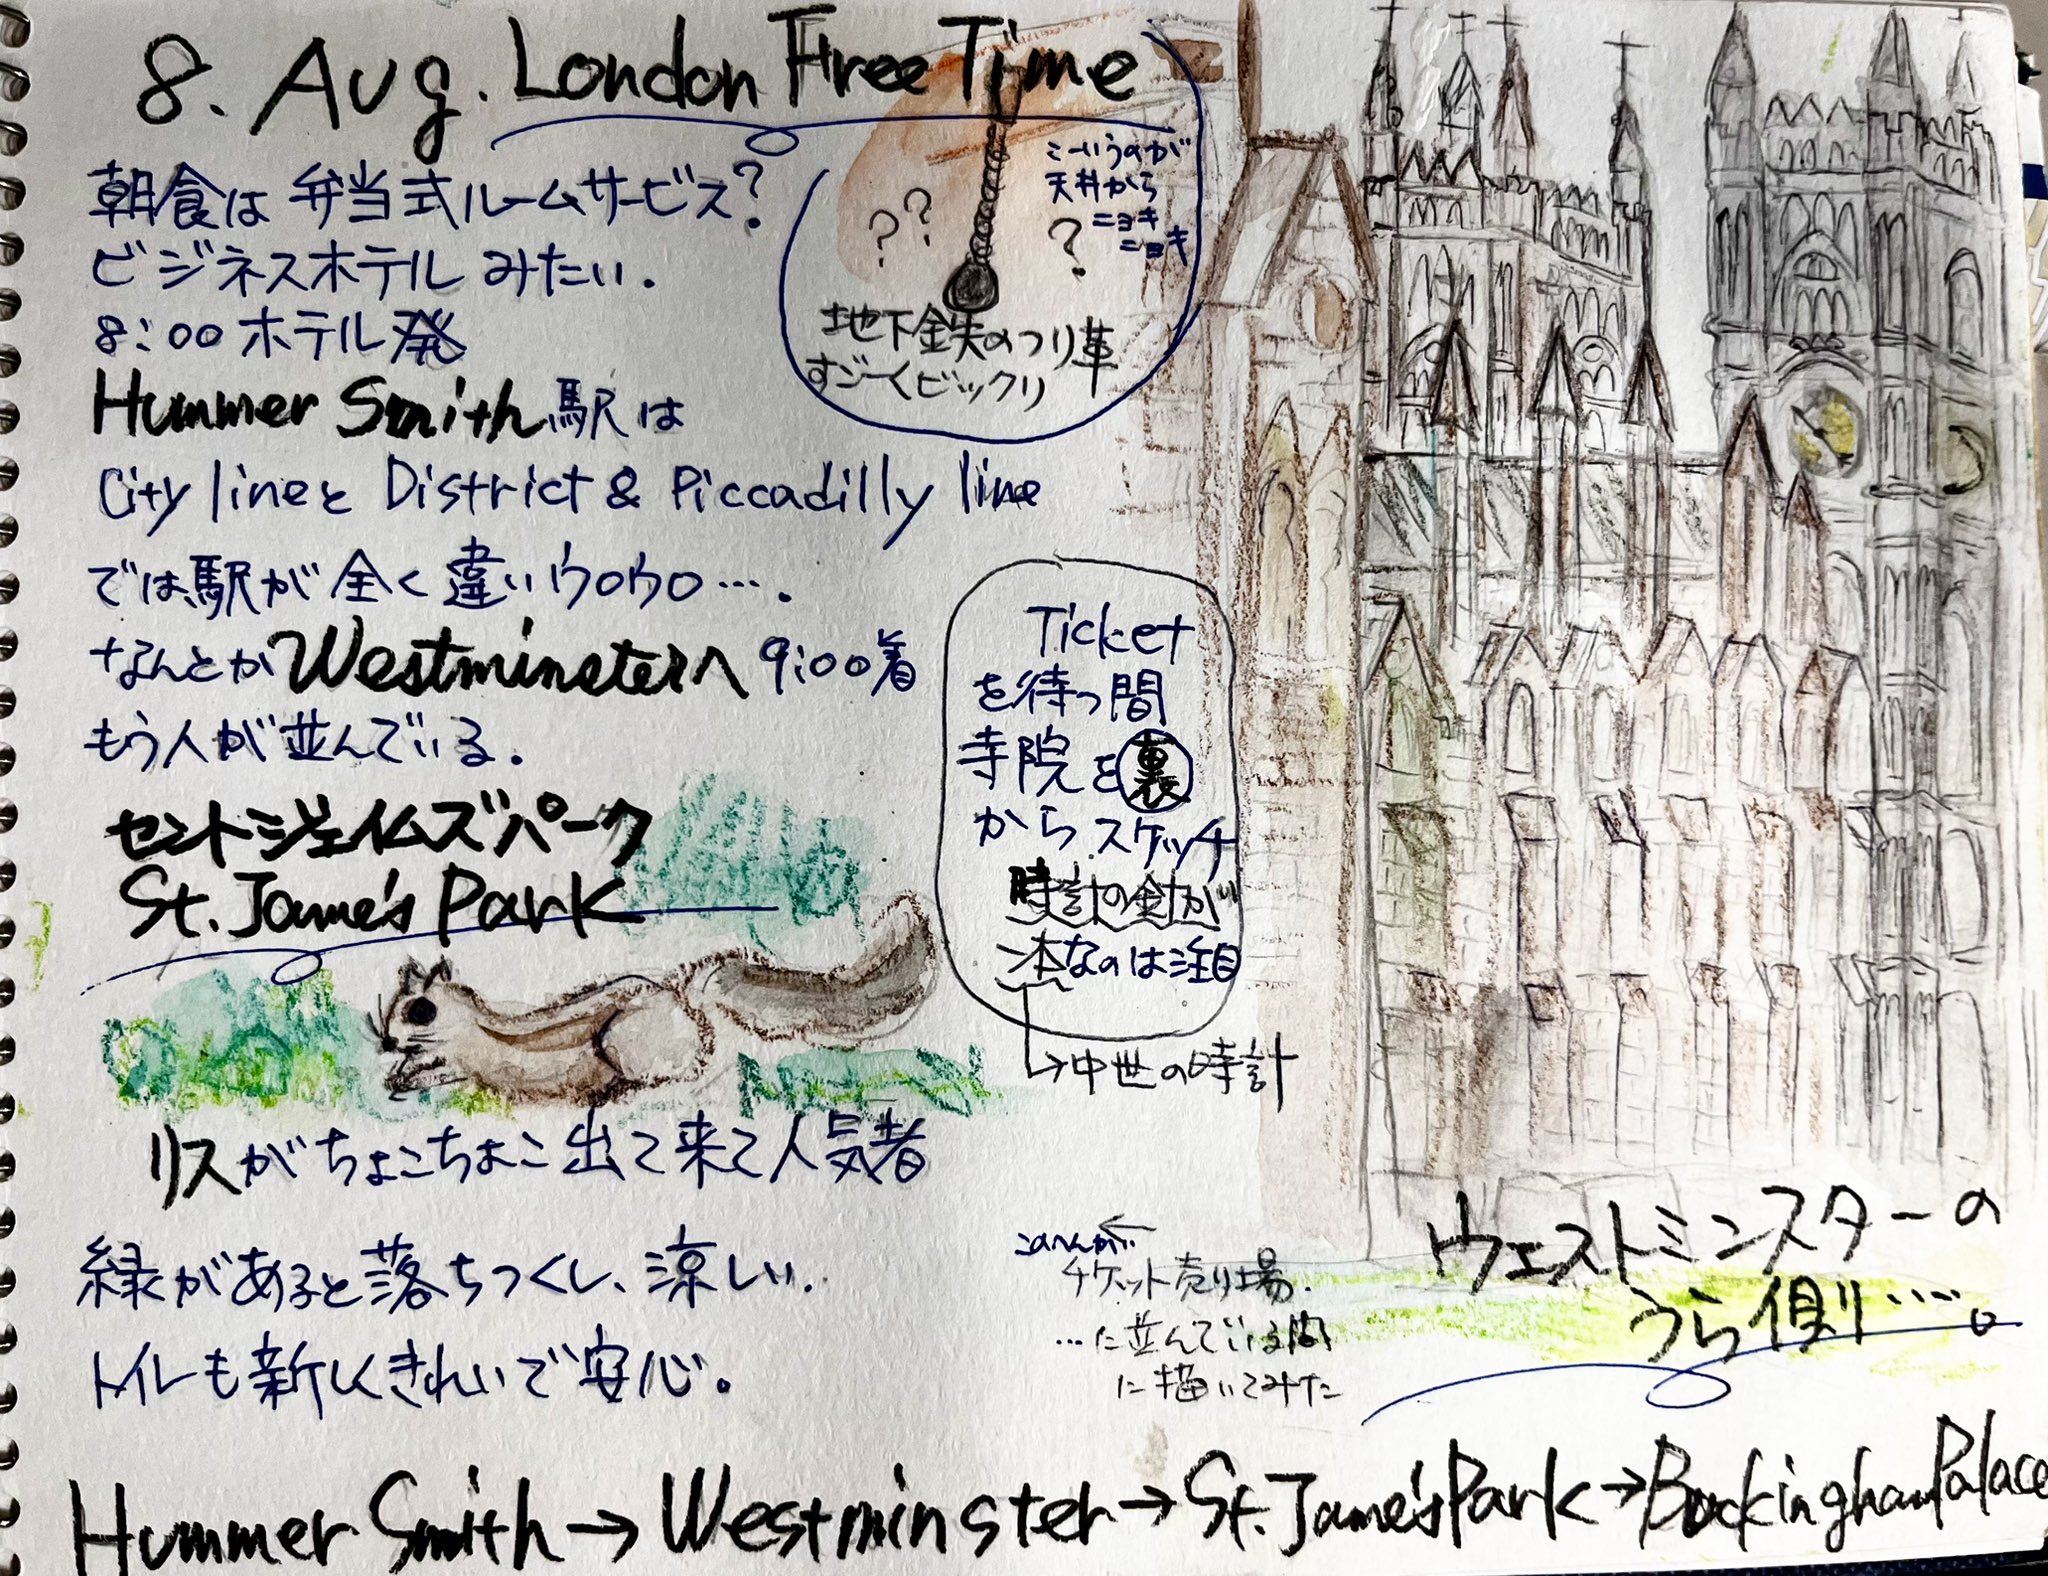 8. Aug. London Free Time
朝食は 弁当式ルームサービス?
ビジネスホテル みたい.
8:00 ホテル発
Hummer Smith 駅は
City lineと District & Piccadilly line
では、駅が 全く違いウロウロ….
なんとか Westminsterへ 9:00着
もう人が並んでいる.
こーいうのが
天井から
ニョキ
ニョキ
? ? ?
地下鉄のつり革
すごーくビックリ
Ticket
を待つ間
寺院を裏
から スケッチ
時計の針が
なのは注目
→中世の時計
セントジェイムズパーク
St. Jame's Park
リスがちょこちょこ 出て来て人気者
緑があると落ちつくし、涼しい.
トイレも新しくきれいで安心。
←
このへんが
チケット売り場.
…に並んでいる間
に描いてみた
ウェストミンスターの
うら側….。
Hummer Smith→Westminster→St. Jame's Park→Buckingham Palace